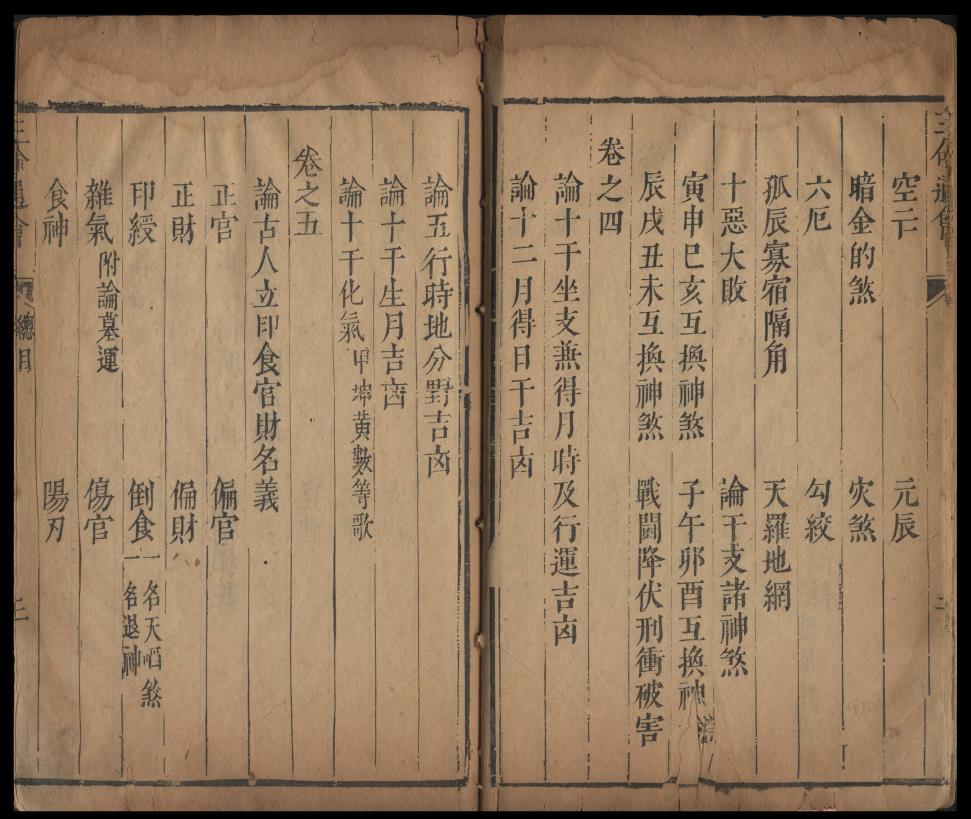 三命通會
空亡 元辰
暗金的煞 灾煞
六厄 勾絞
孤辰寡宿隔角 天羅地網
十惡大敗 論干支諸神煞
寅申巳亥互換神煞 子午卯酉互換神煞
辰戌丑未互換神煞 戰鬪降伏刑衝破害
卷之四
論十干坐支兼得月時及行運吉凶
論十二月得日干吉凶
論五行時地分野吉凶
論十干生月吉凶
論十干化氣 甲坤黄數等歌
卷之五
論古人立印食官財名義
正官 偏官
正財 偏財
印綬 倒食 一名天𠹌煞
一名退神
雜氣 附論墓運 傷官
食神 陽刃
三命通會 總目 二